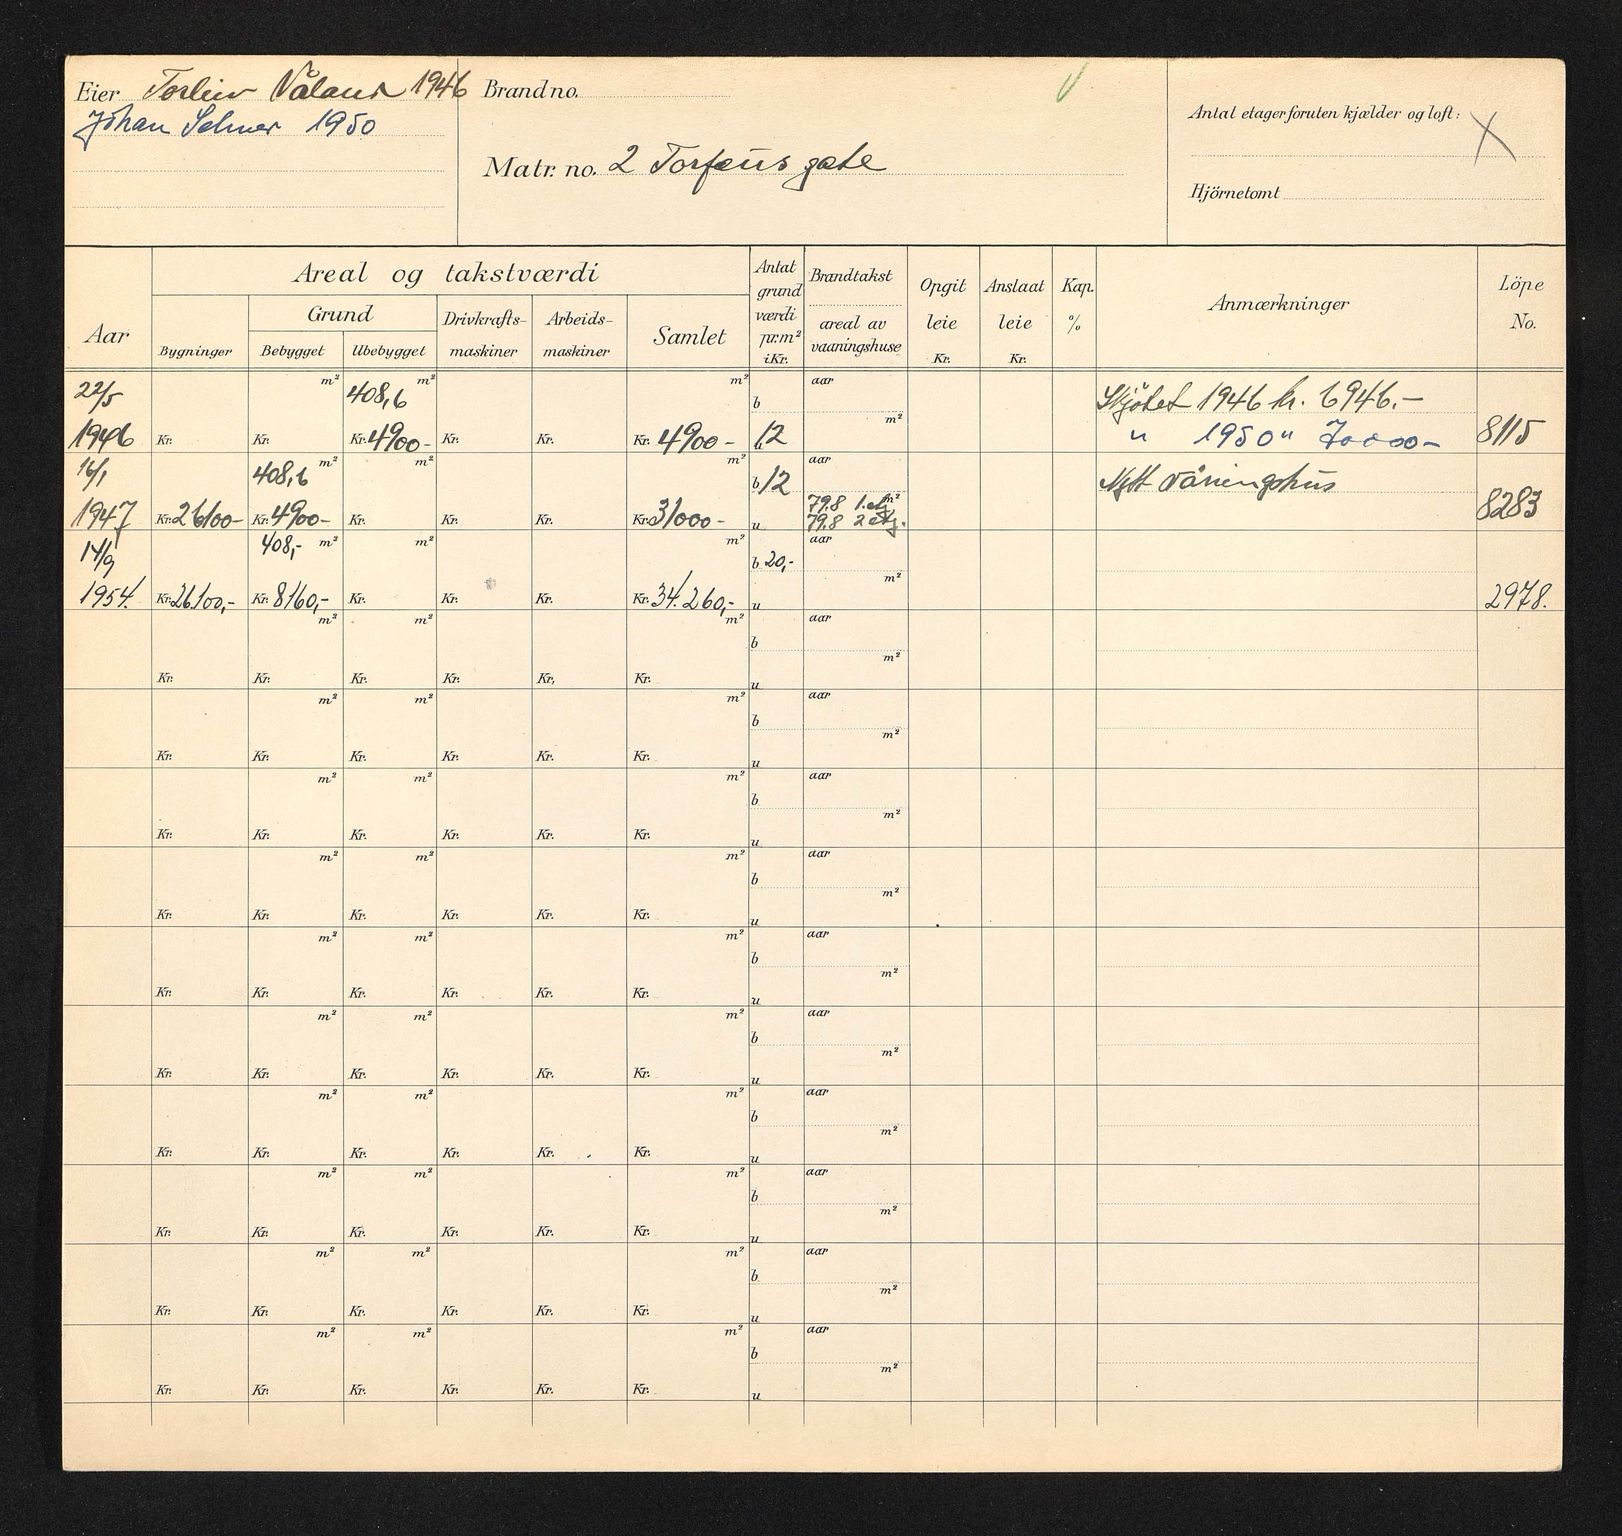 Eier Torleiv Våland 1946
Johan Selmer 1950
Brand no.
Matr. no. 2 Torfæus gate
Antal etager foruten kjælder og loft: X
Hjörnetomt
Areal og takstværdi
Aar
Bygninger
Grund
Bebygget
Ubebygget
Drivkrafts-
maskiner
Arbeids-
maskiner
Samlet
Antat
grund
værdi
pr.m²
i Kr.
Brandtakst
areal av
vaaningshuse
Opgit
leie
Kr.
Anslaat
leie
Kr.
Kap.
%
Anmærkninger
Löpe
No.
22/5 m² 408,6 m² m² b aar Skjötet 1946 kr. 6946.-
1946 Kr. Kr. Kr. 4900- Kr. Kr. Kr. 4900- u 12 m² " 1950 " 70000- 8115
16/1 408,6 m² m² m² b 12 aar Nytt våningshus
1947 Kr. 26100- Kr. 4900- Kr. Kr. Kr. Kr. 31000- u 79.8 1. etg. m² 8283
79.8 2 etg.
14/9 408,- m² m² m² b 20,- aar
1954. Kr. 26.100,- Kr. 8160,- Kr. Kr. Kr. Kr. 34.260,- u m² 2978.
m² m² m² b aar
Kr. Kr. Kr. Kr. Kr. Kr. u m²
m² m² m² b aar
Kr. Kr. Kr. Kr. Kr. Kr. u m²
m² m² m² b aar
Kr. Kr. Kr. Kr. Kr. Kr. u m²
m² m² m² b aar
Kr. Kr. Kr. Kr. Kr. Kr. u m²
m² m² m² b aar
Kr. Kr. Kr. Kr. Kr. Kr. u m²
m² m² m² b aar
Kr. Kr. Kr. Kr. Kr. Kr. u m²
m² m² m² b aar
Kr. Kr. Kr. Kr. Kr. Kr. u m²
m² m² m² b aar
Kr. Kr. Kr. Kr. Kr. Kr. u m²
m² m² m² b aar
Kr. Kr. Kr. Kr. Kr. Kr. u m²
m² m² m² b aar
Kr. Kr. Kr. Kr. Kr. Kr. u m²